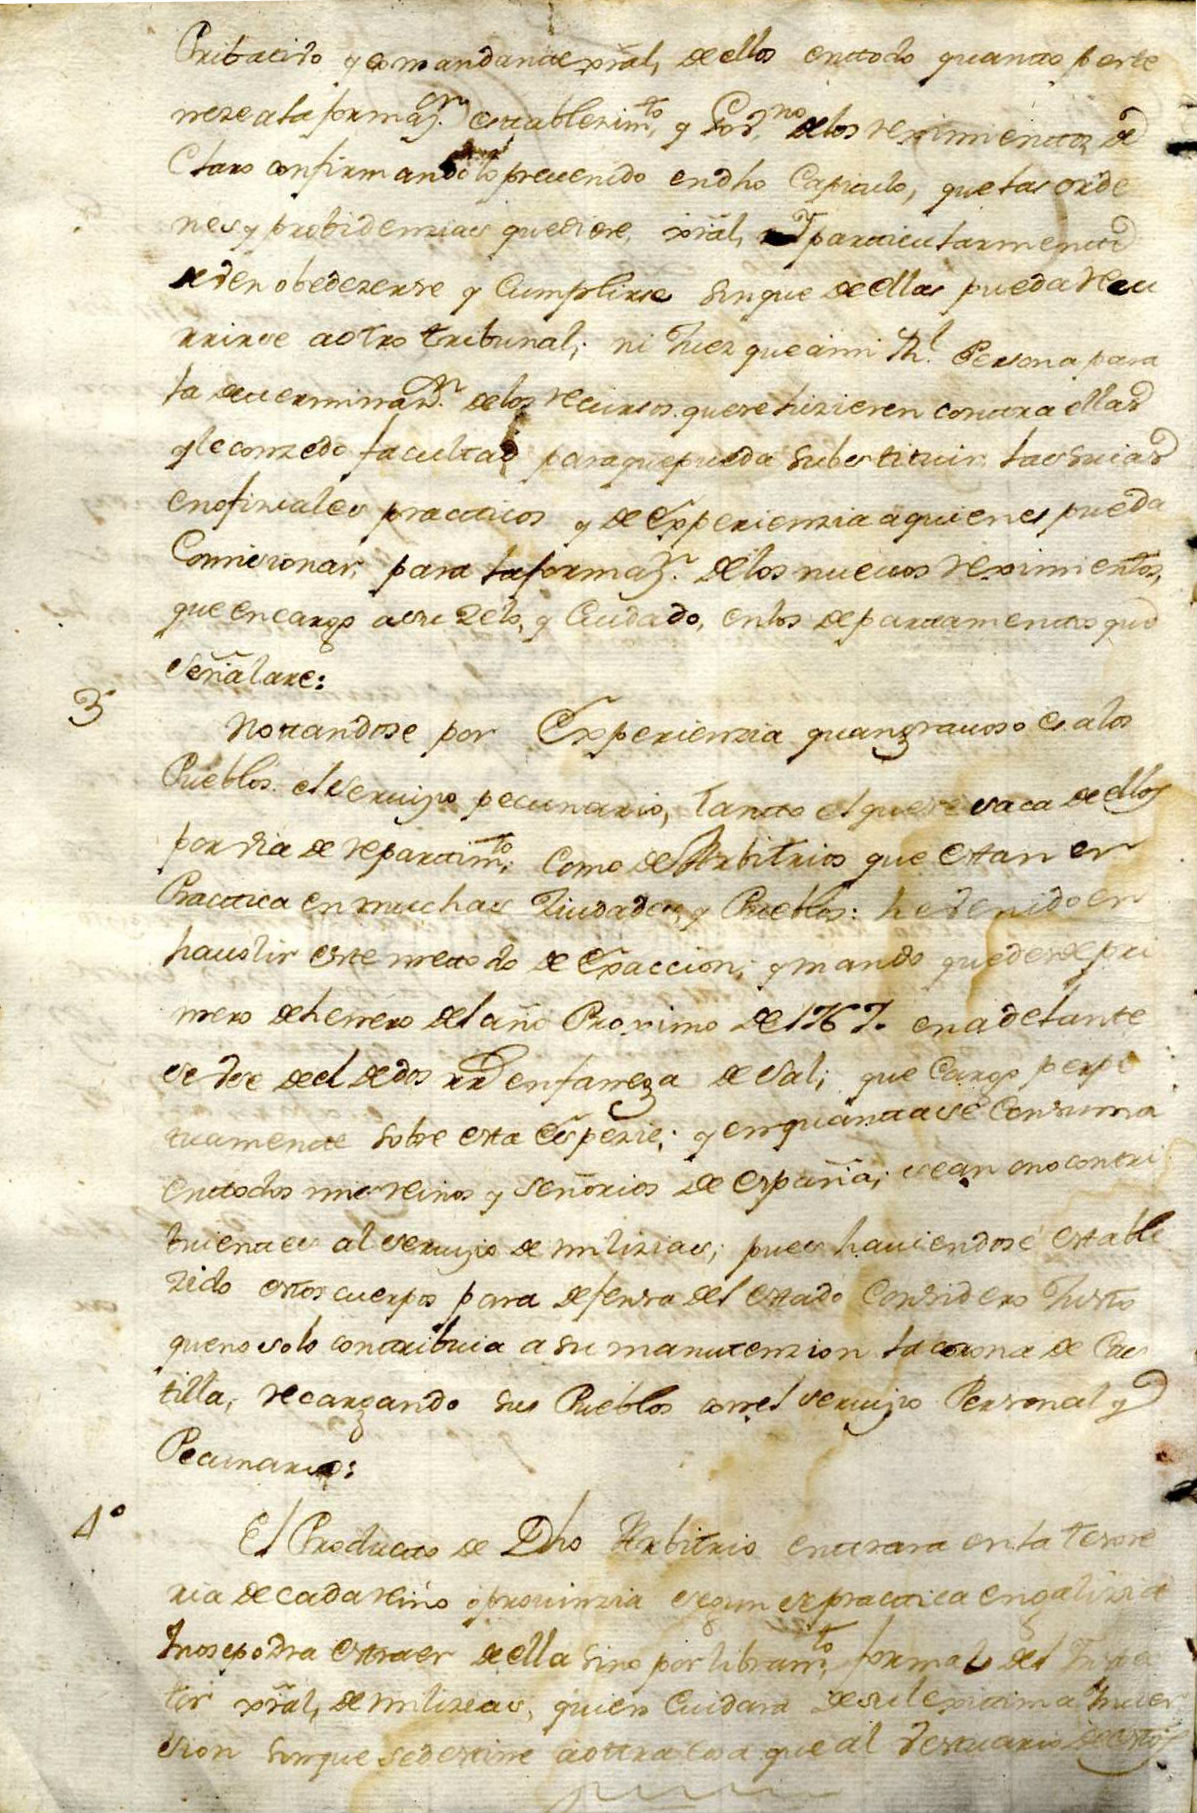 Pribatibo y comandante xral, de ellos enttodo quantto perte
neze a la formazn. establezimto, y Govno. de los reximienttos, de
Claro confirmando lo prevenido endho Capitulo, que las orde
nes y probidenzias que diere, xral, y particularmente
deven obedezerse y Cumplirse sin que de ellas pueda recu
rrirse a otro tribunal, ni Juez que a mi Rl. Persona para
la determinazn. de los recursos que se hizieren contra ellas
y le conzedo facultad para que pueda substituir las suias
en ofiziales practicos y de Experienzia a quienes pueda
Comisionar, para la formazn. de los nuevos reximientos,
que encargo a su zelo, y Cuidado, en los departamentos que
señalare:
3 Nottandose por Experienzia quan gravoso es a los
Pueblos el servizio pecuniario, tantto el que se saca de ellos
por via de reparttimto, como de Arbitrios que estan en
Practtica en muchas Ziudades, y Pueblos: he venido en
havolir este mettodo de Exaccion, y mando que desde pri
mero de henero del año Proximo de 1767. en adelante
se use del de dos rrs en fanega de sal, que Cargo perpe
tuamente sobre esta Espezie, y en quantta se Consuma
enttodos mis reinos y señorios de españa, sean o no contri
buientes al servizio de milizias, pues haviendose estable
zido estos cuerpos para defensa del estado Considero Justo
que no solo contribuia a su manutenzion la corona de Cas
tilla, recargando sus Pueblos con el servizio Personal y
Pecuniario:
4º El Productto de Dho Arbitrio enttrara en la tesore
ria de cada reino o provinzia segun se practica en galizia
y no se podra extraer de ella sino por libramto, formal del Inspec
tor xral, de milizias, quien Cuidara de su lexitima Inver
sion sin que se destine a ottra cosa que al vestuario de estos